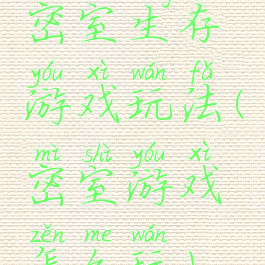 密室生存
yóu xì wán fǎ
游戏玩法(
mì shì yóu xì
密室游戏
zěn me wán
怎么玩)